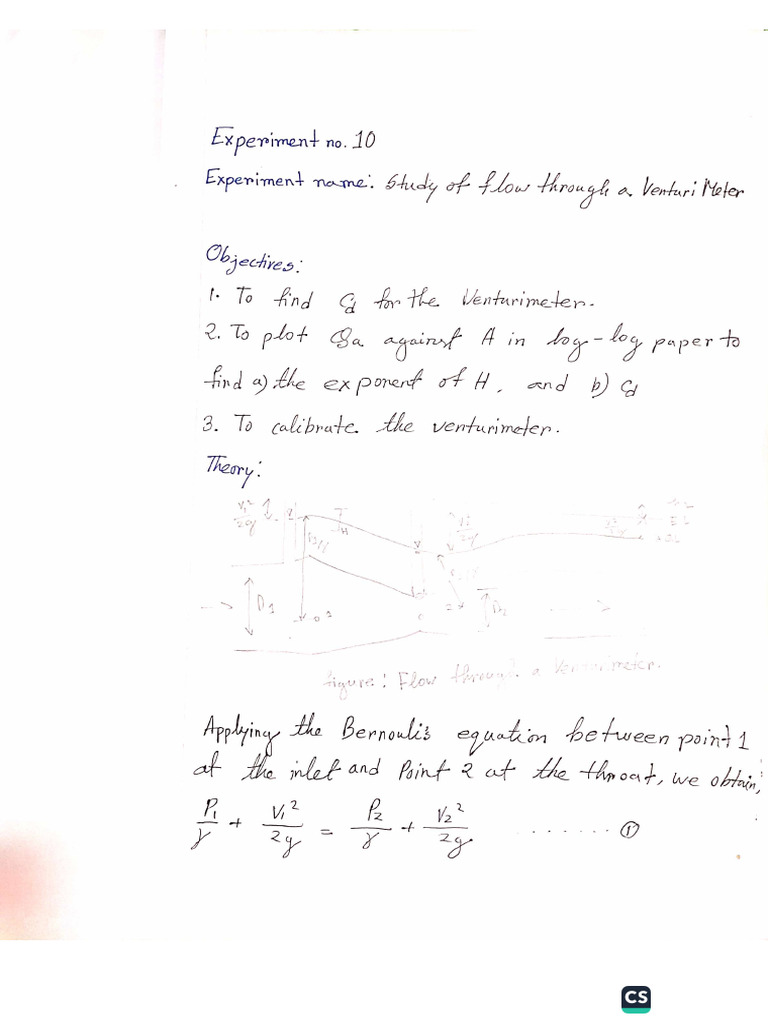 Experiment no. 10
Experiment name: Study of flow through a Venturi Meter
Objectives:
1. To find Cd for the Venturimeter.
2. To plot Qa against H in log-log paper to
find a) the exponent of H, and b) Cd
3. To calibrate the venturimeter.
Theory:
V₁²/2g
H
V₂²/2g
D₁
D₂
figure: Flow through a Venturimeter.
Applying the Bernouli's equation between point 1
at the inlet and point 2 at the throat, we obtain,
P₁/γ + V₁²/2g = P₂/γ + V₂²/2g ........ ①
CS